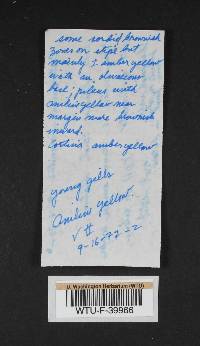 some sordid brownish
zones on stipe but
mainly t. amber yellow
with an olivaceous
feel; pileus with
aniline yellow near
margin more brownish
inward.
Cortina amber yellow
young gills
Aniline Yellow.
V #
9-16-77-2
U. Washington Herbarium (WTU)
WTU-F-39966